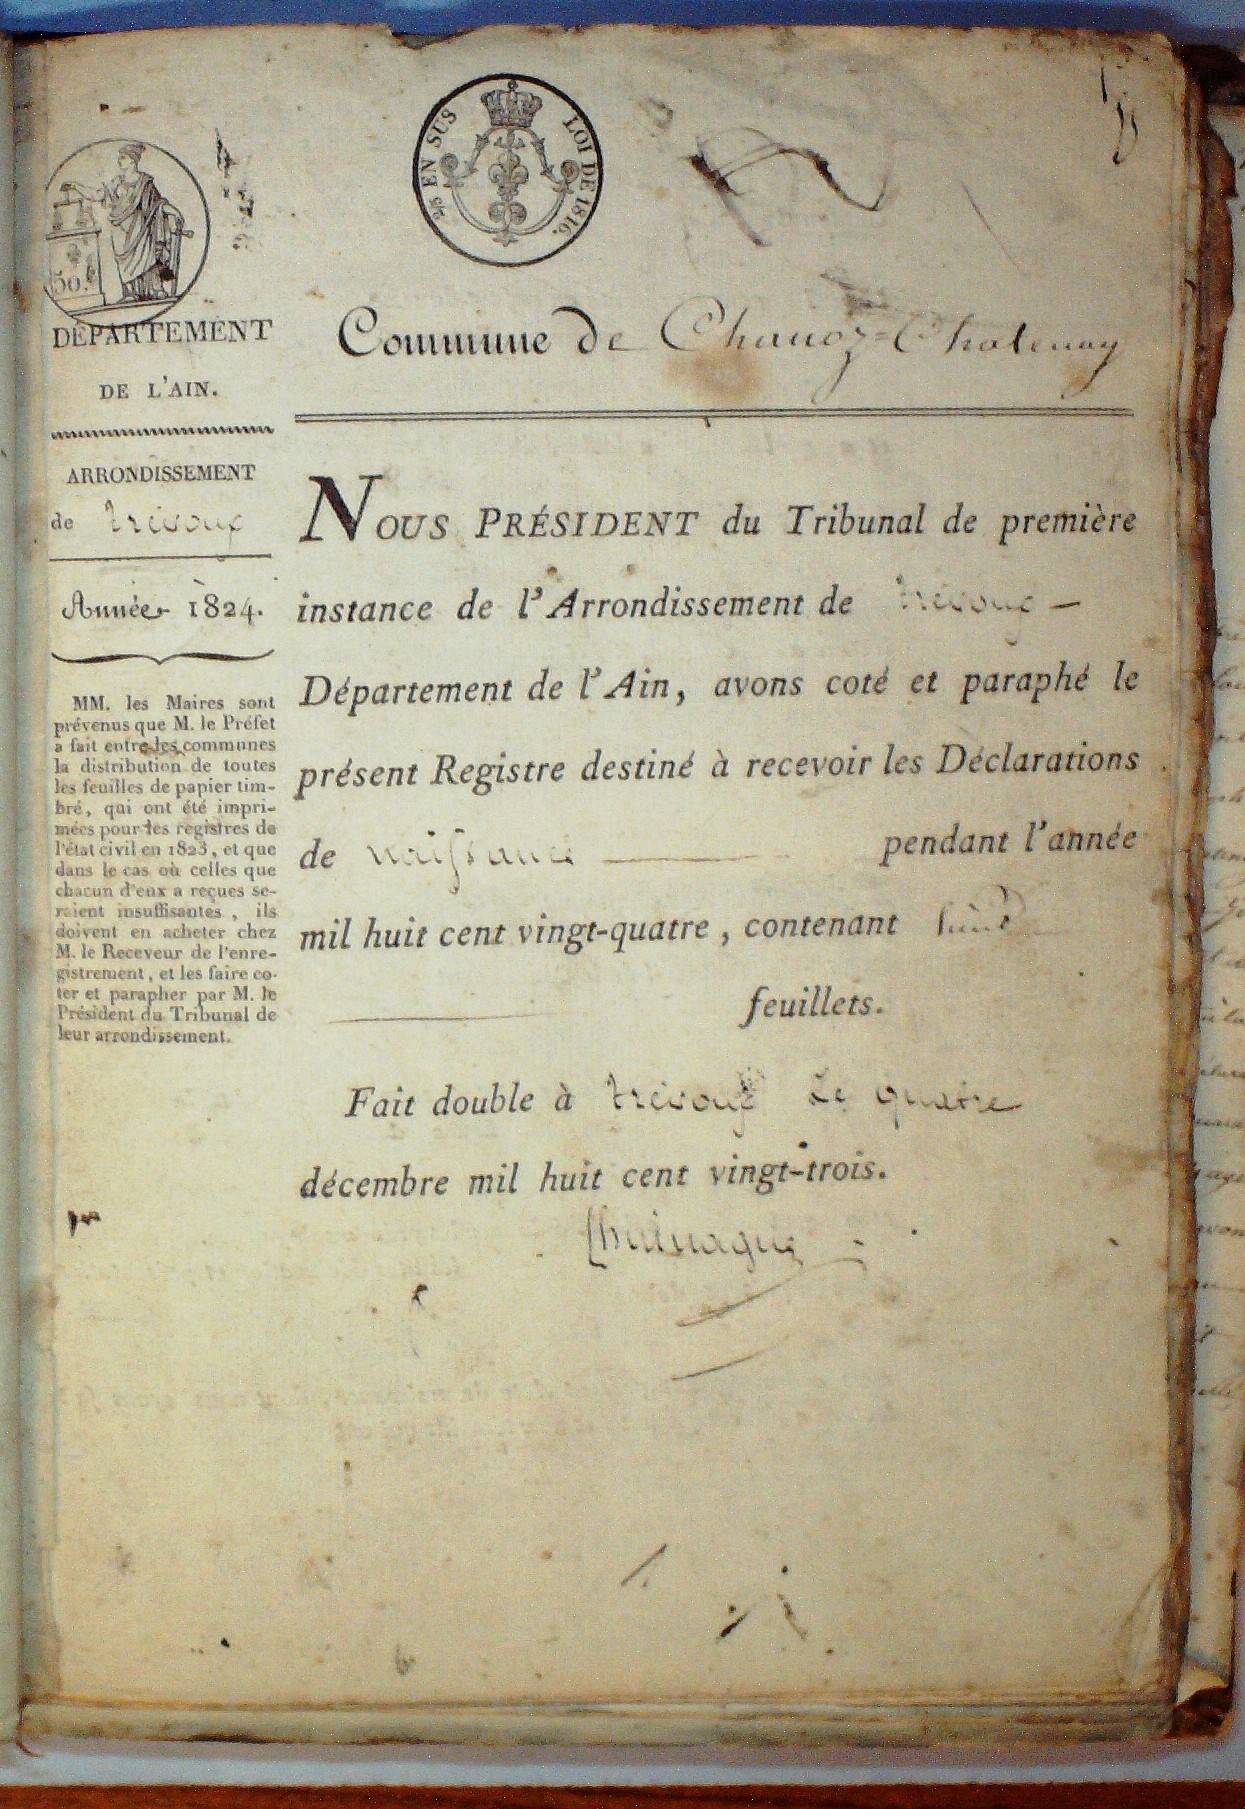 2/5 EN SUS LOI DE 1816.
50.
DÉPARTEMENT
DE L'AIN.
ARRONDISSEMENT
de trévoux
Année 1824.
MM. les Maires sont
prévenus que M. le Préfet
a fait entre les communes
la distribution de toutes
les feuilles de papier tim-
bré, qui ont été impri-
mées pour les registres de
l'état civil en 1823, et que
dans le cas où celles que
chacun d'eux a reçues se-
roient insuffisantes, ils
doivent en acheter chez
M. le Receveur de l'enre-
gistrement, et les faire co-
ter et parapher par M. le
Président du Tribunal de
leur arrondissement.
Commune de Chanoz-Chatenay
NOUS PRÉSIDENT du Tribunal de première
instance de l'Arrondissement de trévoux
Département de l'Ain, avons coté et paraphé le
présent Registre destiné à recevoir les Déclarations
de naissance pendant l'année
mil huit cent vingt-quatre, contenant
feuillets.
Fait double à trévoux Le quatre
décembre mil huit cent vingt-trois.